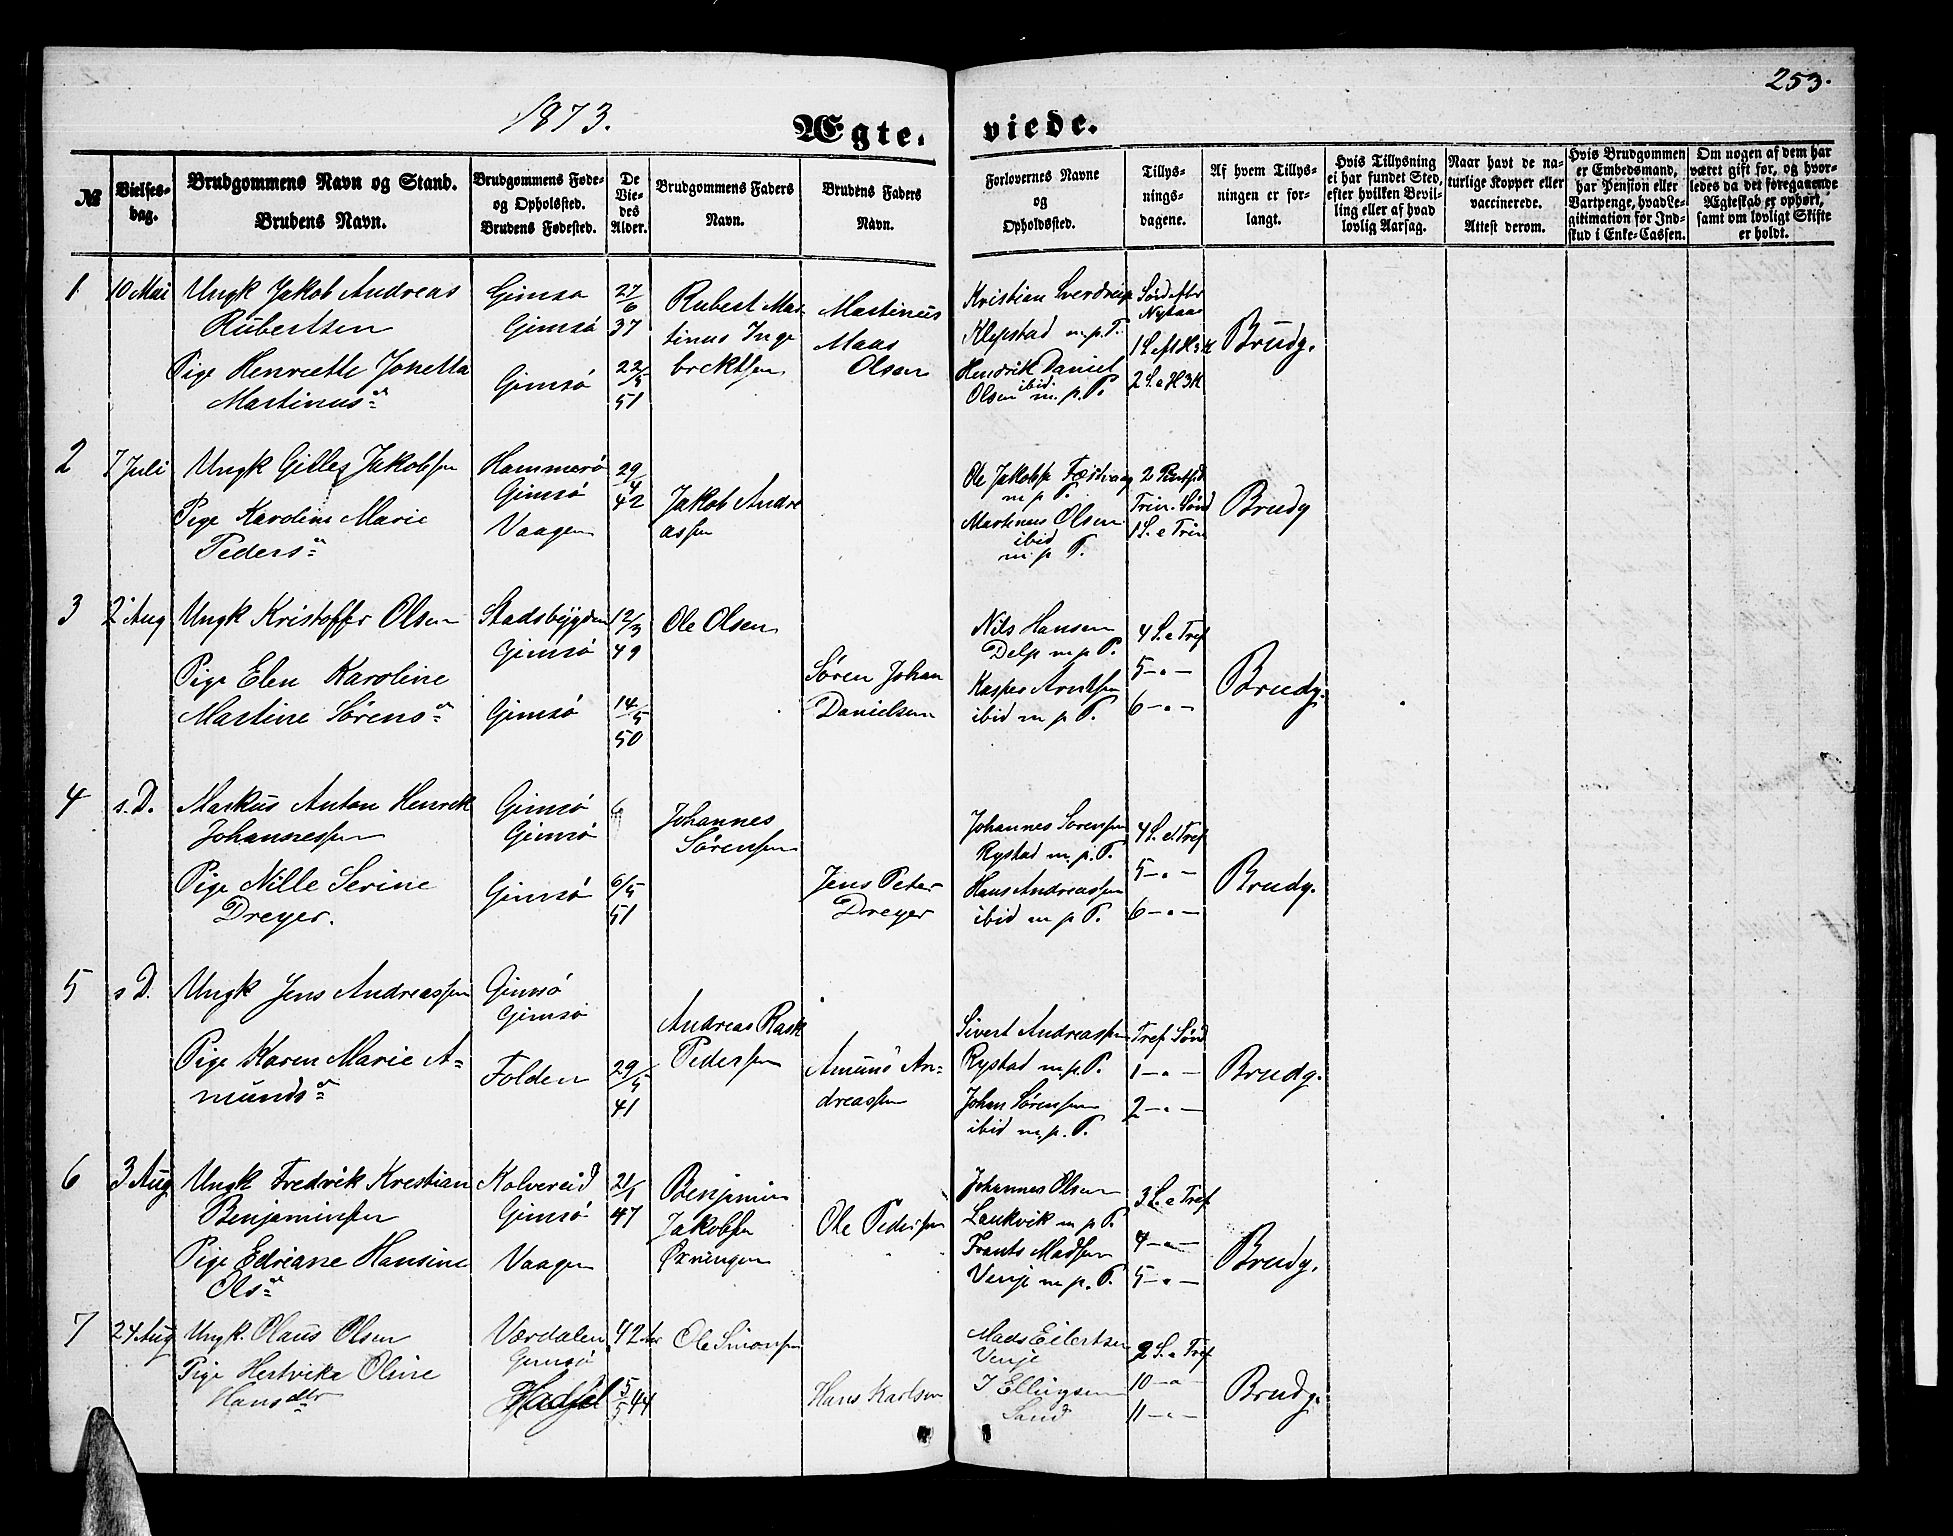 253.
1873.
Ægte. viede.
№
Vielses-
dag.
Brudgommens Navn og Stand.
Brudens Navn.
Brudgommens Føde-
og Opholdsted.
Brudens Fødested.
De
Vie-
des
Alder.
Brudgommens Faders
Navn.
Brudens Faders
Navn.
Forlovernes Navne
og
Opholdsted.
Tillys-
nings-
dagene.
Af hvem Tillys-
ningen er for-
langt.
Hvis Tillysning
ei har fundet Sted,
efter hvilken Bevil-
ling eller af hvad
lovlig Aarsag.
Naar havt de na-
turlige Kopper eller
vaccinerede.
Attest derom.
Hvis Brudgommen
er Embedsmand,
har Pension eller
Vartpenge, hvad Le-
gitimation for Ind-
skud i Enke-Cassen.
Om nogen af dem har
været gift for, og hvor-
ledes da det foregaaende
Ægteskab er ophørt,
samt om lovligt Skifte
er holdt.
1
10 Mai
Ungk Jakob Andreas
Rubertsen
Pige Henriette Jonetta
Martinusdr
Gimsø
Gimsø
Gimsø
27/6
37
22/5
51
Rubert Mar
tinus Inge
brektsen
Martinus
Maas
Olsen
Kristian Sverdrup
Klepstad m.p.T.
Hendrik Daniel
ibid.
Olsen m.p.T.
Sønd efter
Nytaar
1 S. eft H3K
2 S. e H3K
Brudg.
2
7 Juli
Ungk Gilles Jakobssen
Pige Karoline Marie
Pedersdr
Hammerø
Gimsø
Vaagen
29/4
42
Jakob Andre
assen
Ole Jakobss Festvaag
m p T.
Martinus Olsen
ibid
m p T.
Trin. Sønd
1 S. e Trin
Brudg
3
2 Aug
Ungk Kristoffer Olsen
Pige Elen Karoline
Martine Sørensdr
Stadsbygden
Gimsø
Gimsø
12/3
49
14/5
50
Ole Olsen
Søren Johan
Danielsen
Nils Hansen
Delp m p T.
Kasper Arntsen
ibid m p T.
4 S. e Tref
5 - " -
6 - " -
Brudg.
4
s. D.
Markus Anton Henrik
Johannessen
Pige Nille Serine
Dreyer.
Gimsø
Gimsø
Gimsø
6
6/5
51
Johannes
Sørensen
Jens Peter
Dreyer
Johannes Sørensen
Rystad m.p.T.
Hans Andreassen
ibid m p T.
4 S. e. Tref
5 - " -
6 - " -
Brudg.
5
s D.
Ungk Jens Andreassen
Pige Karen Marie A-
mundsdr
Gimsø
Gimsø
Folden
29/5
41
Andreas Rask
Pedersen
Amund An-
dreassen
Sivert Andreassen
Rystad m.p.T.
Johan Sørensen
ibid m.p.T.
Tref Sønd
1 - " -
2 - " -
Brudg.
6
3 Aug
Ungk Fredrik Kristian
Benjaminsen
Pige Edriane Hansine
Olsdr
Kolvereid
Gimsø
Vaagen
21/1
47
Benjamin
Jakobsen
Ørningen
Ole Pedersen
Johannes Olsen
Laukvik m p T.
Frants Madsen
Venje m.p.T.
3 S. e Tref
4 - " -
5 - " -
Brudg.
7
24 Aug
Ungk. Olaus Olsen
Pige Hertvika Olsine
Hansdtr
Værdalen
Gimsø
Hadsel
42 Aar
5/5 44
Ole Simonsen
Hans Karlsen
Mads Eilertsen
Venje
J Ellingsen
Sand
9 S. e Tref
10 - " -
11 - " -
Brudg.